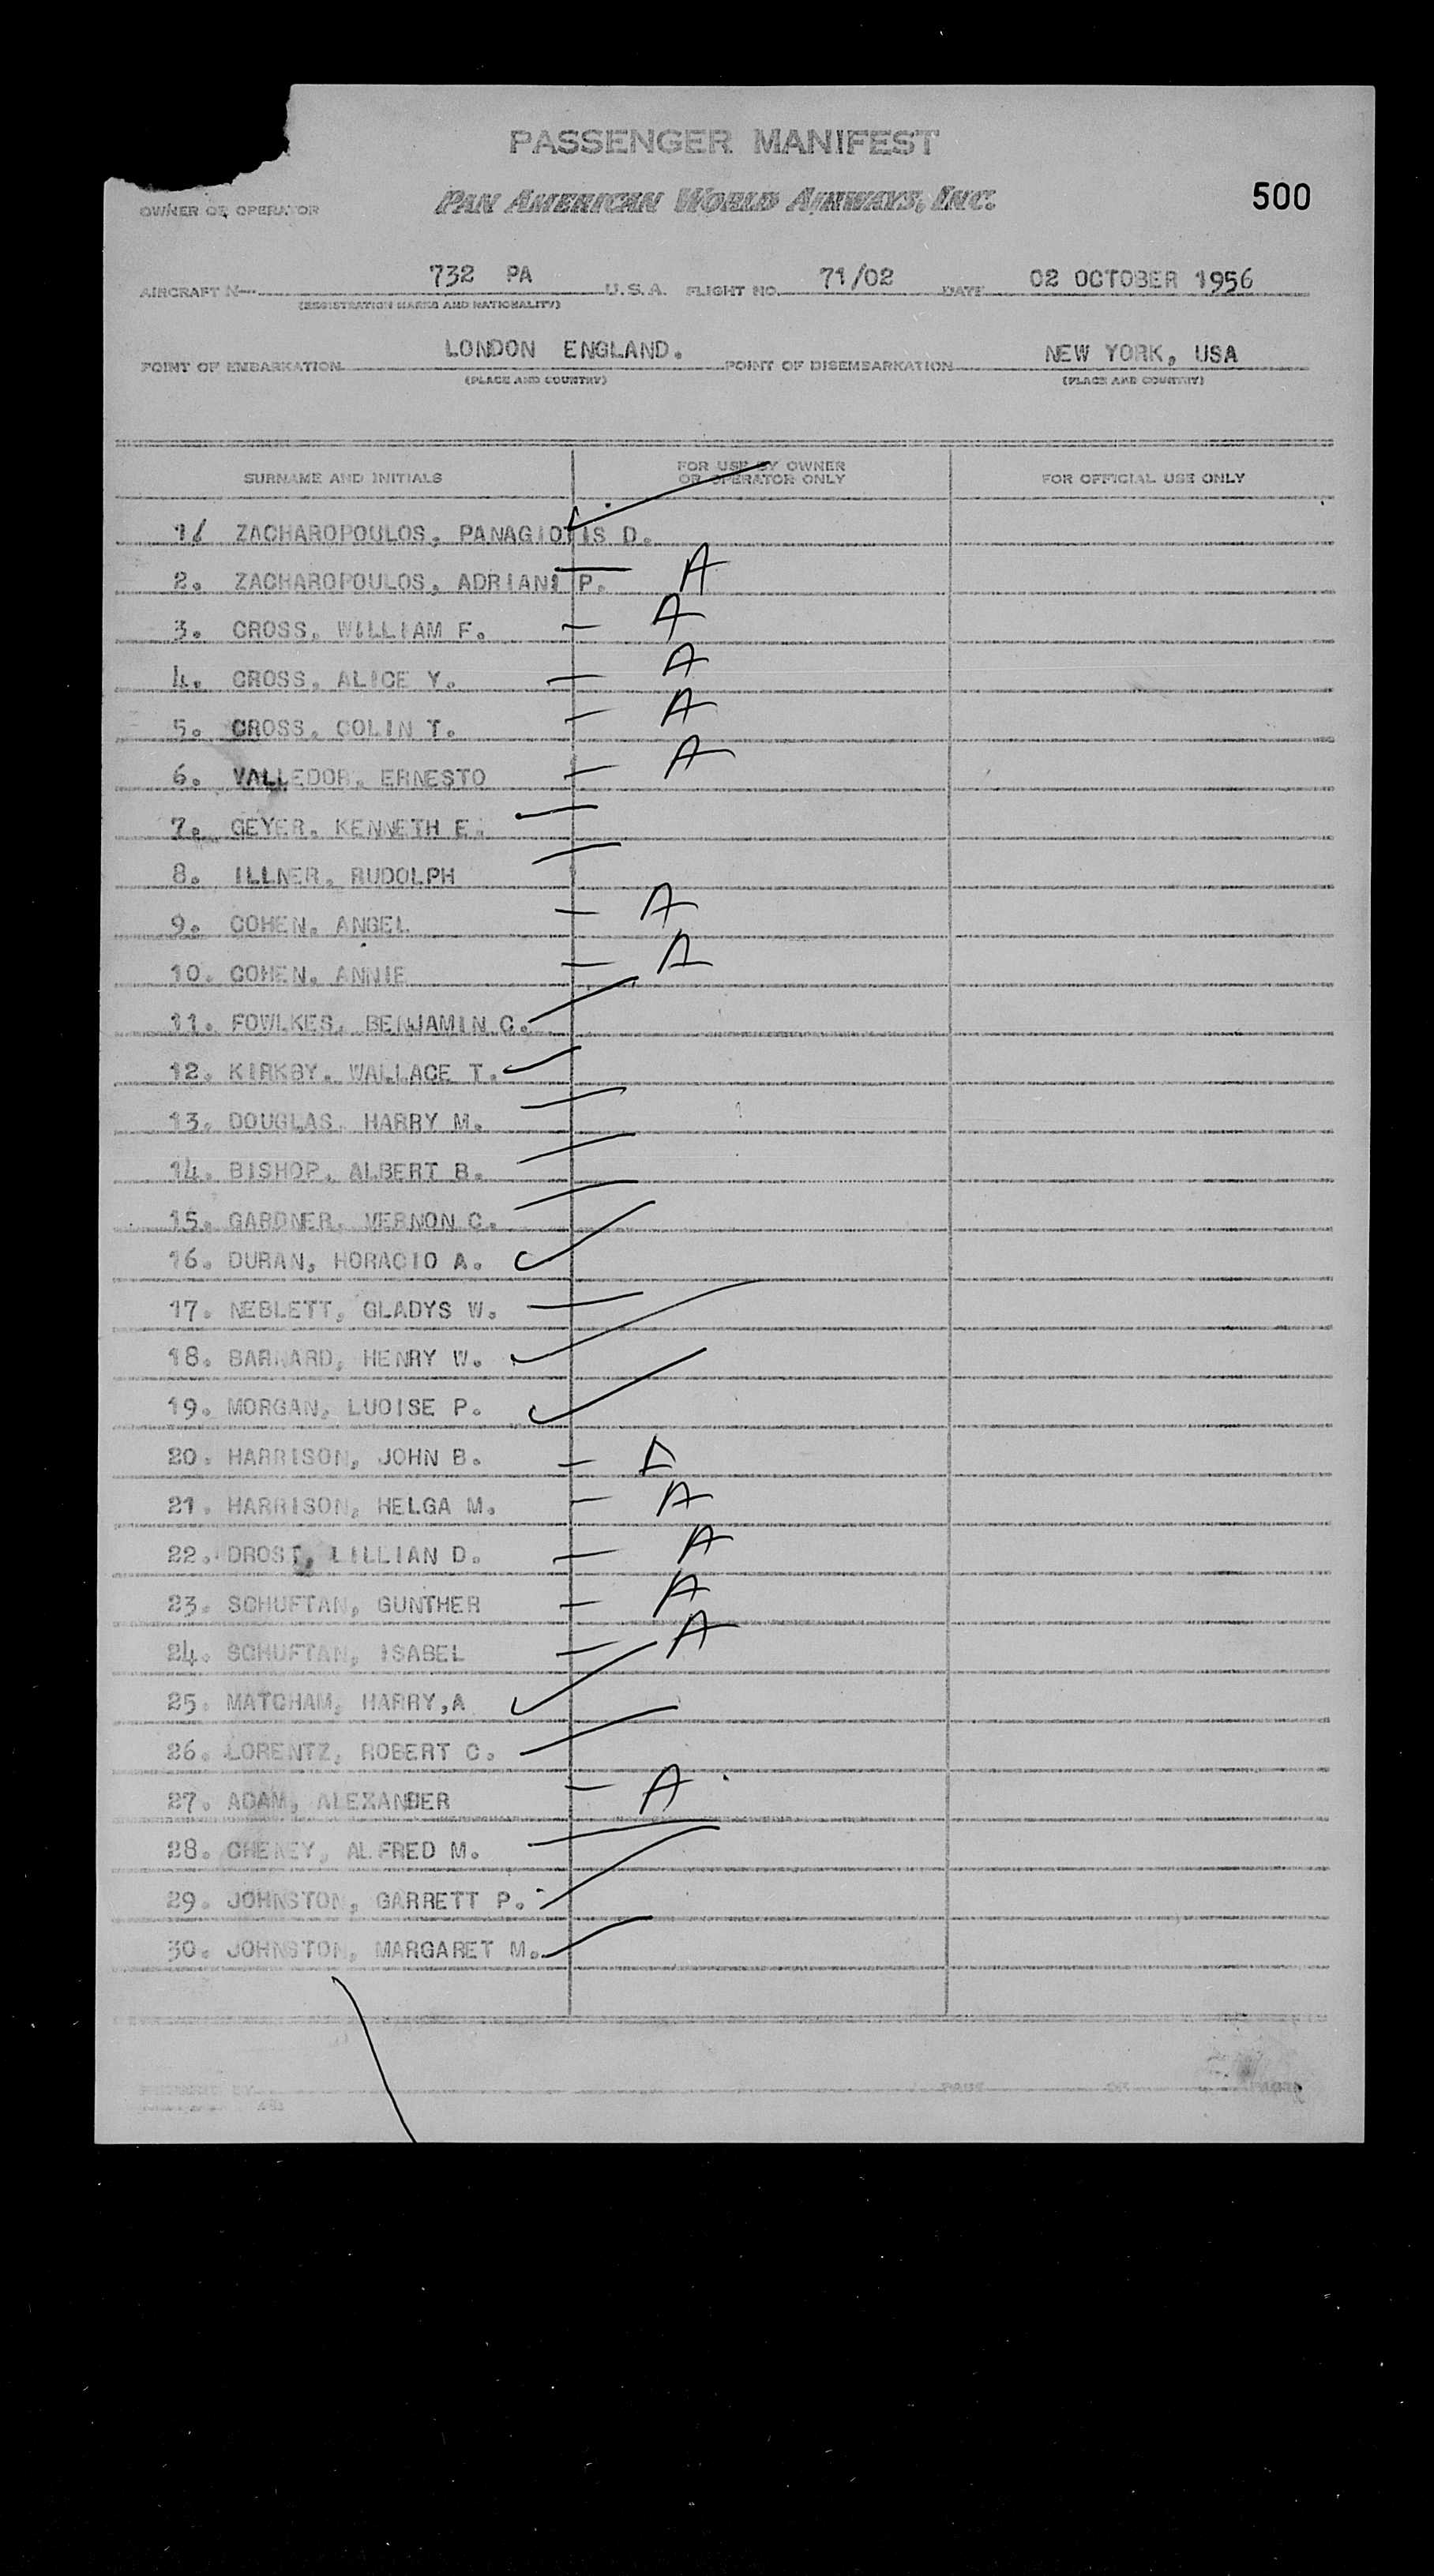 PASSENGER MANIFEST
OWNER OR OPERATOR PAN AMERICAN WORLD AIRWAYS, INC. 500
AIRCRAFT N 732 PA U.S.A. FLIGHT NO. 71/02 DATE 02 OCTOBER 1956
(REGISTRATION MARKS AND NATIONALITY)
POINT OF EMBARKATION LONDON ENGLAND. POINT OF DISEMBARKATION NEW YORK, USA
(PLACE AND COUNTRY) (PLACE AND COUNTRY)
SURNAME AND INITIALS FOR USE BY OWNER OR OPERATOR ONLY FOR OFFICIAL USE ONLY
1/ ZACHAROPOULOS, PANAGIOTIS D.
2. ZACHAROPOULOS, ADRIANI P. — A
3. CROSS, WILLIAM F. — A
4. CROSS, ALICE Y. — A
5. CROSS, COLIN T. — A
6. VALLEDOR, ERNESTO — A
7. GEYER, KENNETH E.
8. ILLNER, RUDOLPH
9. COHEN, ANGEL — A
10. COHEN, ANNIE — A
11. FOWLKES, BENJAMIN C.
12. KIRKBY, WALLACE T.
13. DOUGLAS, HARRY M.
14. BISHOP, ALBERT B.
15. GARDNER, VERNON C.
16. DURAN, HORACIO A.
17. NEBLETT, GLADYS W.
18. BARNARD, HENRY W.
19. MORGAN, LUOISE P.
20. HARRISON, JOHN B. — A
21. HARRISON, HELGA M. — A
22. DROST, LILLIAN D. — A
23. SCHUFTAN, GUNTHER — A
24. SCHUFTAN, ISABEL — A
25. MATCHAM, HARRY,A
26. LORENTZ, ROBERT C.
27. ADAM, ALEXANDER — A
28. CHENEY, ALFRED M.
29. JOHNSTON, GARRETT P.
30. JOHNSTON, MARGARET M.
PREPARED BY PAGE OF PAGES